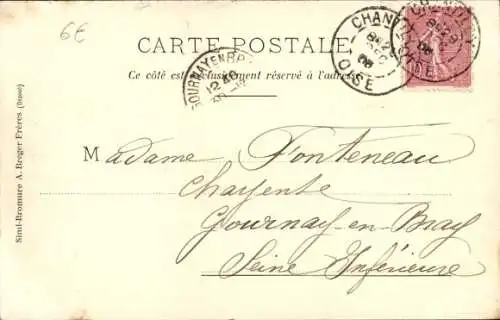 6€
CARTE POSTALE
Ce côté est exclusivement réservé à l'adresse
CHANTILLY
OISE
GOURNAY EN BRAY
12 40
Madame Fonteneau
Charpente
Gournay-en-Bray
Seine Inférieure
Simi-Bromure A. Breger Frères